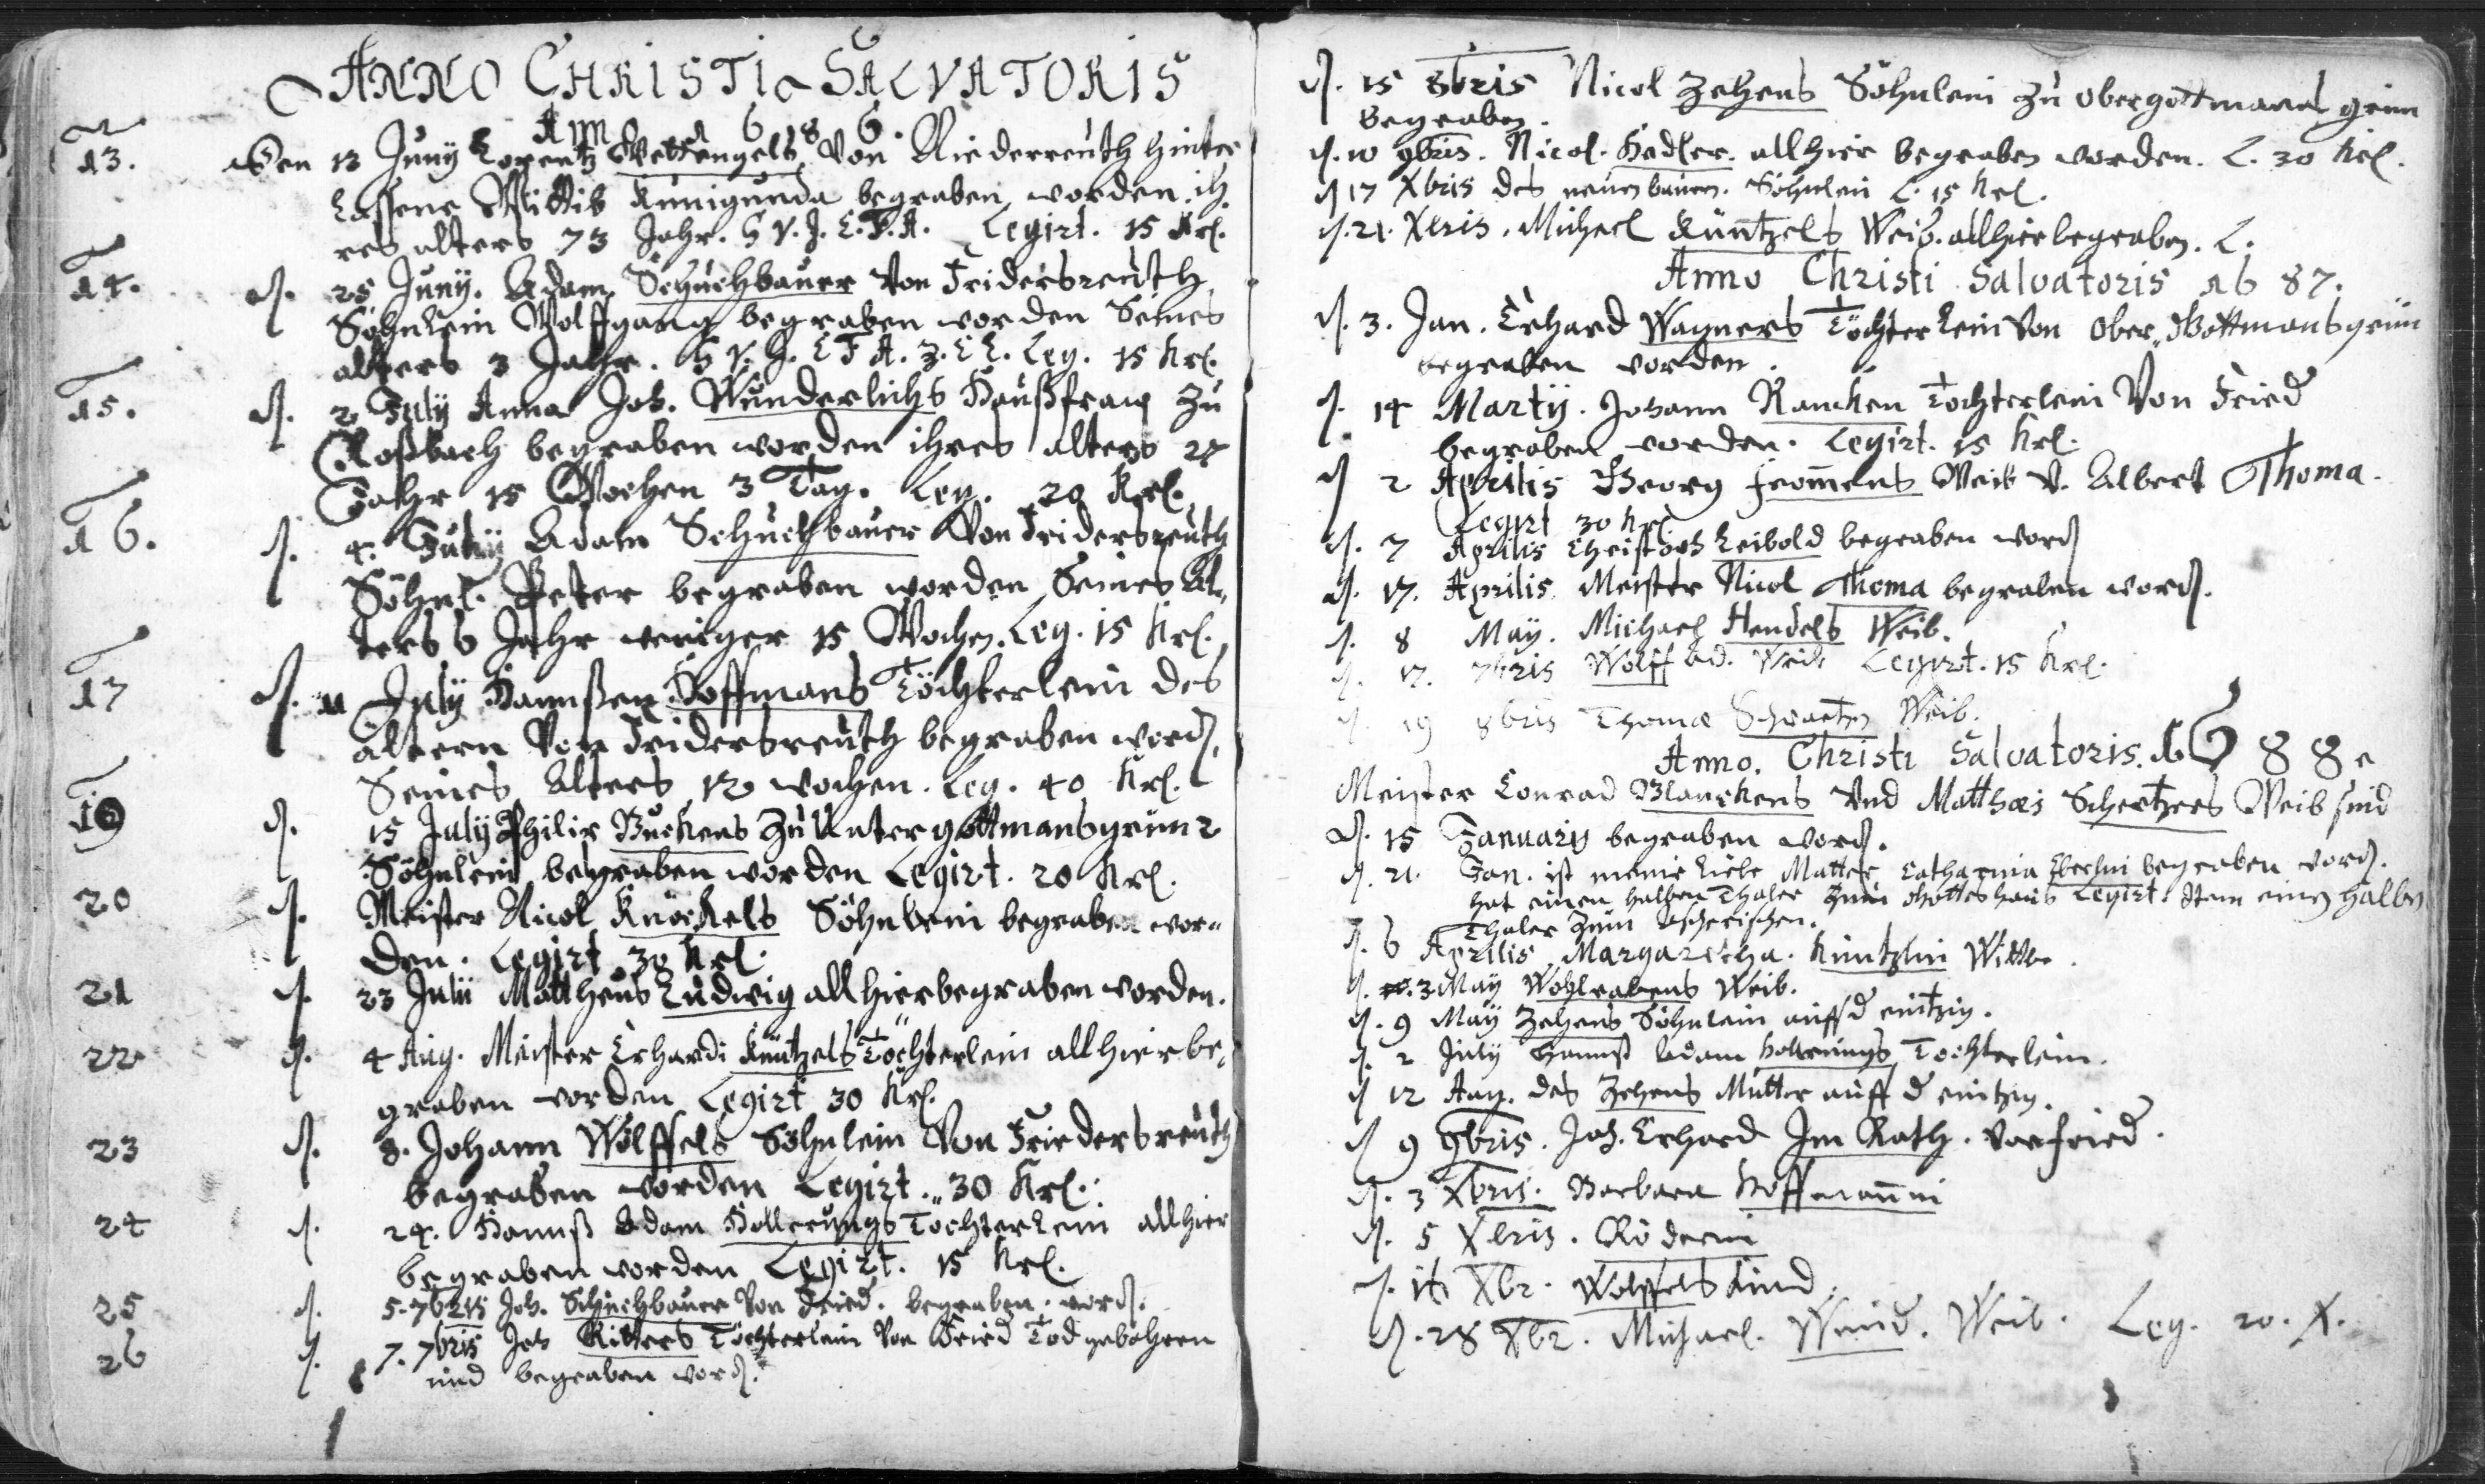 ANNO CHRISTI SALVATORIS
1686.
13. Den 13 Juny Lorentz Wettengels Von Niederreuth hinter
Lassene Wittib Kunigunda begraben worden ih
res alters 73 Jahr. S V. J. E. F. A. Legirt. 15 Krl.
14. d. 25 Juny. Adam Schuchbauer Von Fridersreuth
Söhnlein Wolffgang begraben worden Seines
alters 3 Jahr. S V. J. E F A. Z. E L. Leg. 15 Krl.
15. d. 2 July Anna Joh. Wunderlichs Haußfrau zu
Roßbach begraben worden ihres alters 27
Jahr 15 Wochen 3 Tag. Leg. 20 Krl.
16. d. 4. July Adam Schuchbauer Von Fridersreuth
Söhnl. Peter begraben worden Seines Al„
ters 6 Jahr weniger 15 Wochen. Leg. 15 Krl.
17 d. 11 July Hannßen Hoffmans Töchterlein des
ältern Von Fridersreuth begraben word.
Seines Alters 12 wochen. Leg. 40 Krl.
19 d. 15 July Philip Buchens Zu Untergottmansgrün 2
Söhnlein begraben worden Legirt. 20 Krl.
20 d. Meister Nicol Knöckels Söhnlein begraben wor„
den. Legirt 30 Krl.
21 d. 23 Julii Mattheus Ludwig allhier begraben worden.
22 d. 4 Aug. Meister Erhardi Küntzels Töchterlein allhier be„
graben worden Legirt 30 Krl.
23 d. 8. Johann Wölffels Söhnlein Von Friedersreuth
begraben worden Legirt. 30 Krl.
24 d. 24. Hannß Adam Hollerungs Töchterlein allhier
begraben worden Legirt. 15 Krl.
25 d. 5. 7bris Joh. Schuchbauer Von Fried. begraben word.
26 d. 7. 7bris Joh Ritters Töchterlein Von Fried Tod gebohren
und begraben word.
d. 15 8bris Nicol Zehens Söhnlein zu Obergottmansgrün
begraben.
d. 10 9bris. Nicol. Hadler. allhier begraben worden. L. 30 Krl.
d 17 Xbris des neuen bauern Söhnlein L. 15 Krl.
d. 21. Xbris. Michael Küntzels Weib. allhier begraben. L.
Anno Christi Salvatoris 1687.
d. 3. Jan. Erhard Wagners Töchterlein Von Ober„Gottmansgrün
begraben worden.
d. 14 Martij. Johann Rancken Tochterlein Von Fried
begraben worden. Legirt. 15 Krl.
d 2 Aprilis Georg Frommens Weib v. Albert Thoma.
Legirt 30 Krl.
d. 7 Aprilis Christoph Leibold begraben word
d. 17. Aprilis Meister Nicol Thoma begraben word.
d. 8 May. Michael Hendels Weib.
d. 17. 7bris Wolff Ad. Weib Legirt. 15 Krl.
d. 19 8bris Thomæ Schwartzn Weib.
Anno. Christi Salvatoris. 1688.
Meister Conrad Blanckens Und Matthæi Schertzers Weib sind
d. 15 Januarij begraben word.
d. 21. Jan. ist meine Liebe Mutter Catharina Eberlin begraben word.
hat einen halben Thaler zum Gotteshaus Legirt. Item einen halben
Thaler zum
d. 6 Aprilis Margaretha. Küntzlin Wittbe.
d. 3 May Wohlrabens Weib.
d. 9 May Zehens Söhnlein auff d eintzig.
d. 2 July Hannß Adam Hollerungs Tochterlein.
d 12 Aug. des Zehens Mutter auff d eintzig.
d 9 9bris. Joh. Erhard Im Rath. Von Fried.
d. 3 Xbris. Barbara Hoffmannin
d. 5 Xbris. Röderin
d. 16 Xbr. Wolffels Kind.
d. 28 Xbr. Michael. Wund. Weib. Leg. 20. X.